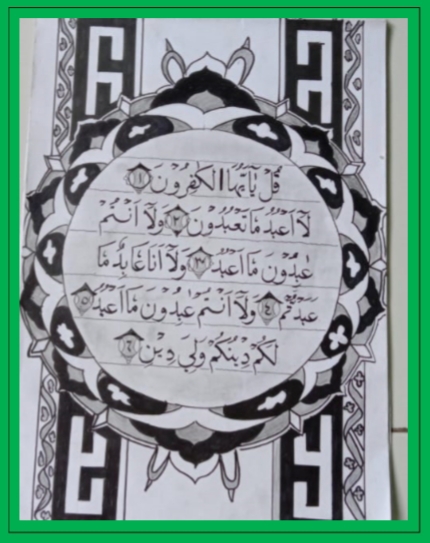 قُلْ يٰٓاَيُّهَا الْكٰفِرُوْنَ ١
لَآ اَعْبُدُ مَا تَعْبُدُوْنَ ٢ وَلَآ اَنْتُمْ
عٰبِدُوْنَ مَآ اَعْبُدُ ٣ وَلَآ اَنَا۠ عَابِدٌ مَّا
عَبَدْتُّمْ ٤ وَلَآ اَنْتُمْ عٰبِدُوْنَ مَآ اَعْبُدُ ٥
لَكُمْ دِيْنُكُمْ وَلِيَ دِيْنِ ٦